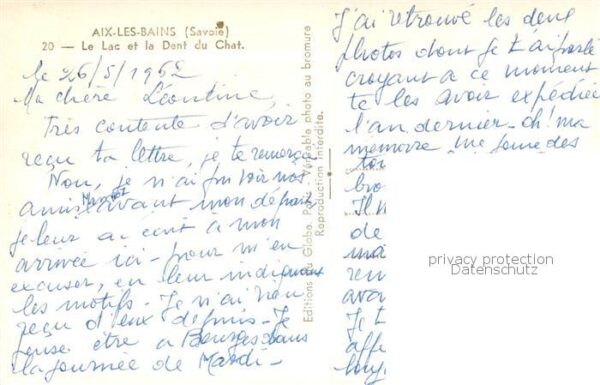 AIX-LES-BAINS (Savoie)
20 — Le Lac et la Dent du Chat.
le 26/5/1962
Ma chère Léontine,
Très contente d'avoir
reçu ta lettre, je te remercie
Non, je n'ai pu voir nos
amis avant mon départ
je leur ai écrit à mon
arrivée ici - pour m'en
excuser, en leur indiquant
les motifs - Je n'ai rien
reçu d'eux depuis - Je
pense être à Bourges dans
la journée de Mardi -
Editions du Globe, Véritable photo au bromure
Reproduction interdite.
J'ai retrouvé les deux
photos dont je t'ai parlé
croyant a ce moment
te les avoir expédiées
l'an dernier - oh! ma
mémoire me joue des
tou
bro
Il n
de
ma
ren
ava
Je t
affe
long
privacy protection
Datenschutz